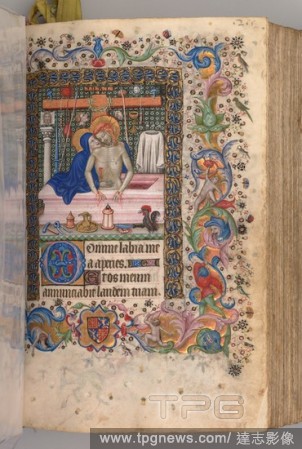 Domine labia me
a aperies.
Et os meum
annunciabit laudem tuam.
TPG
www.tpgnews.com/ 達志影像